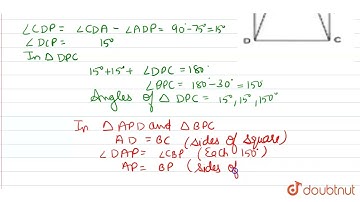 ∠CDP = ∠CDA - ∠ADP = 90°-75°=15°
∠DCP = 15°
In △ DPC
15°+15°+ ∠DPC = 180°
∠DPC = 180°-30° = 150
Angles of △ DPC = 15°, 15°, 150°
In △ APD and △ BPC
AD = BC (sides of square)
∠DAP = ∠CBP (Each 150°)
AP = BP (sides of
D C
doubtnut